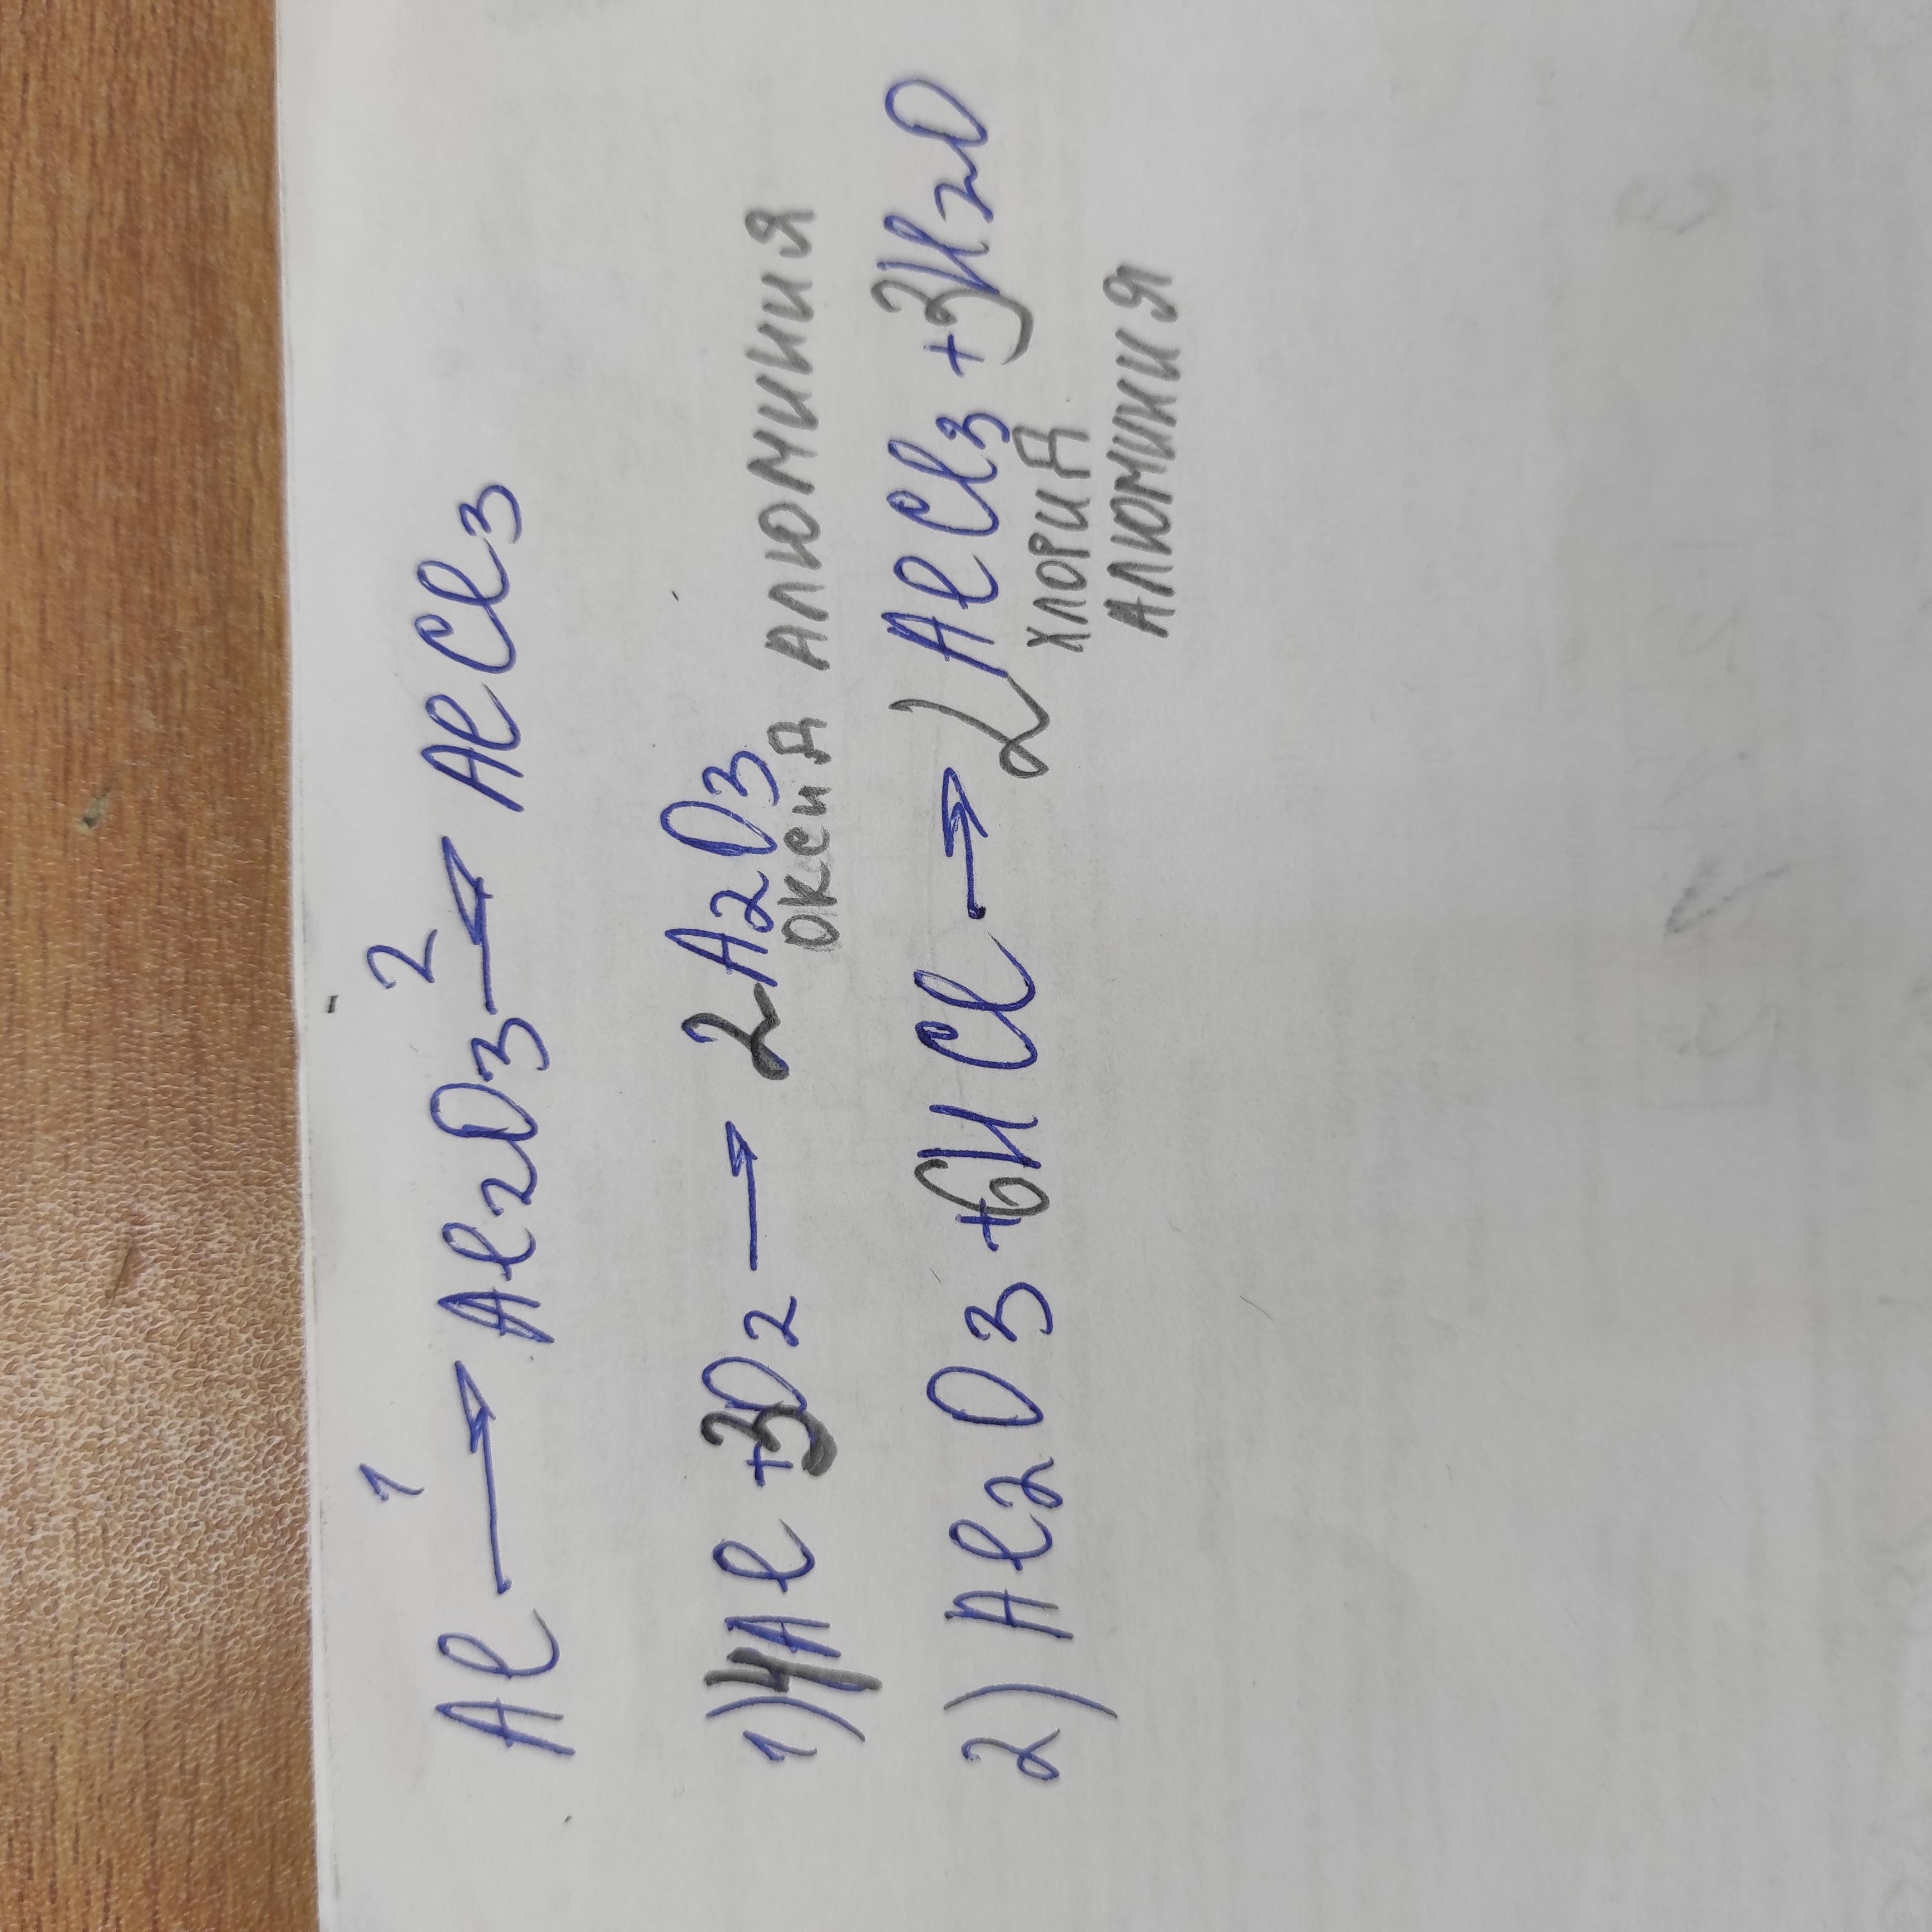 1 2
Al → Al2O3 → AlCl3
1) 4Al + 3O2 → 2A2O3
оксид алюминия
2) Al2O3 + 6HCl → 2AlCl3 + 3H2O
хлорид
алюминия